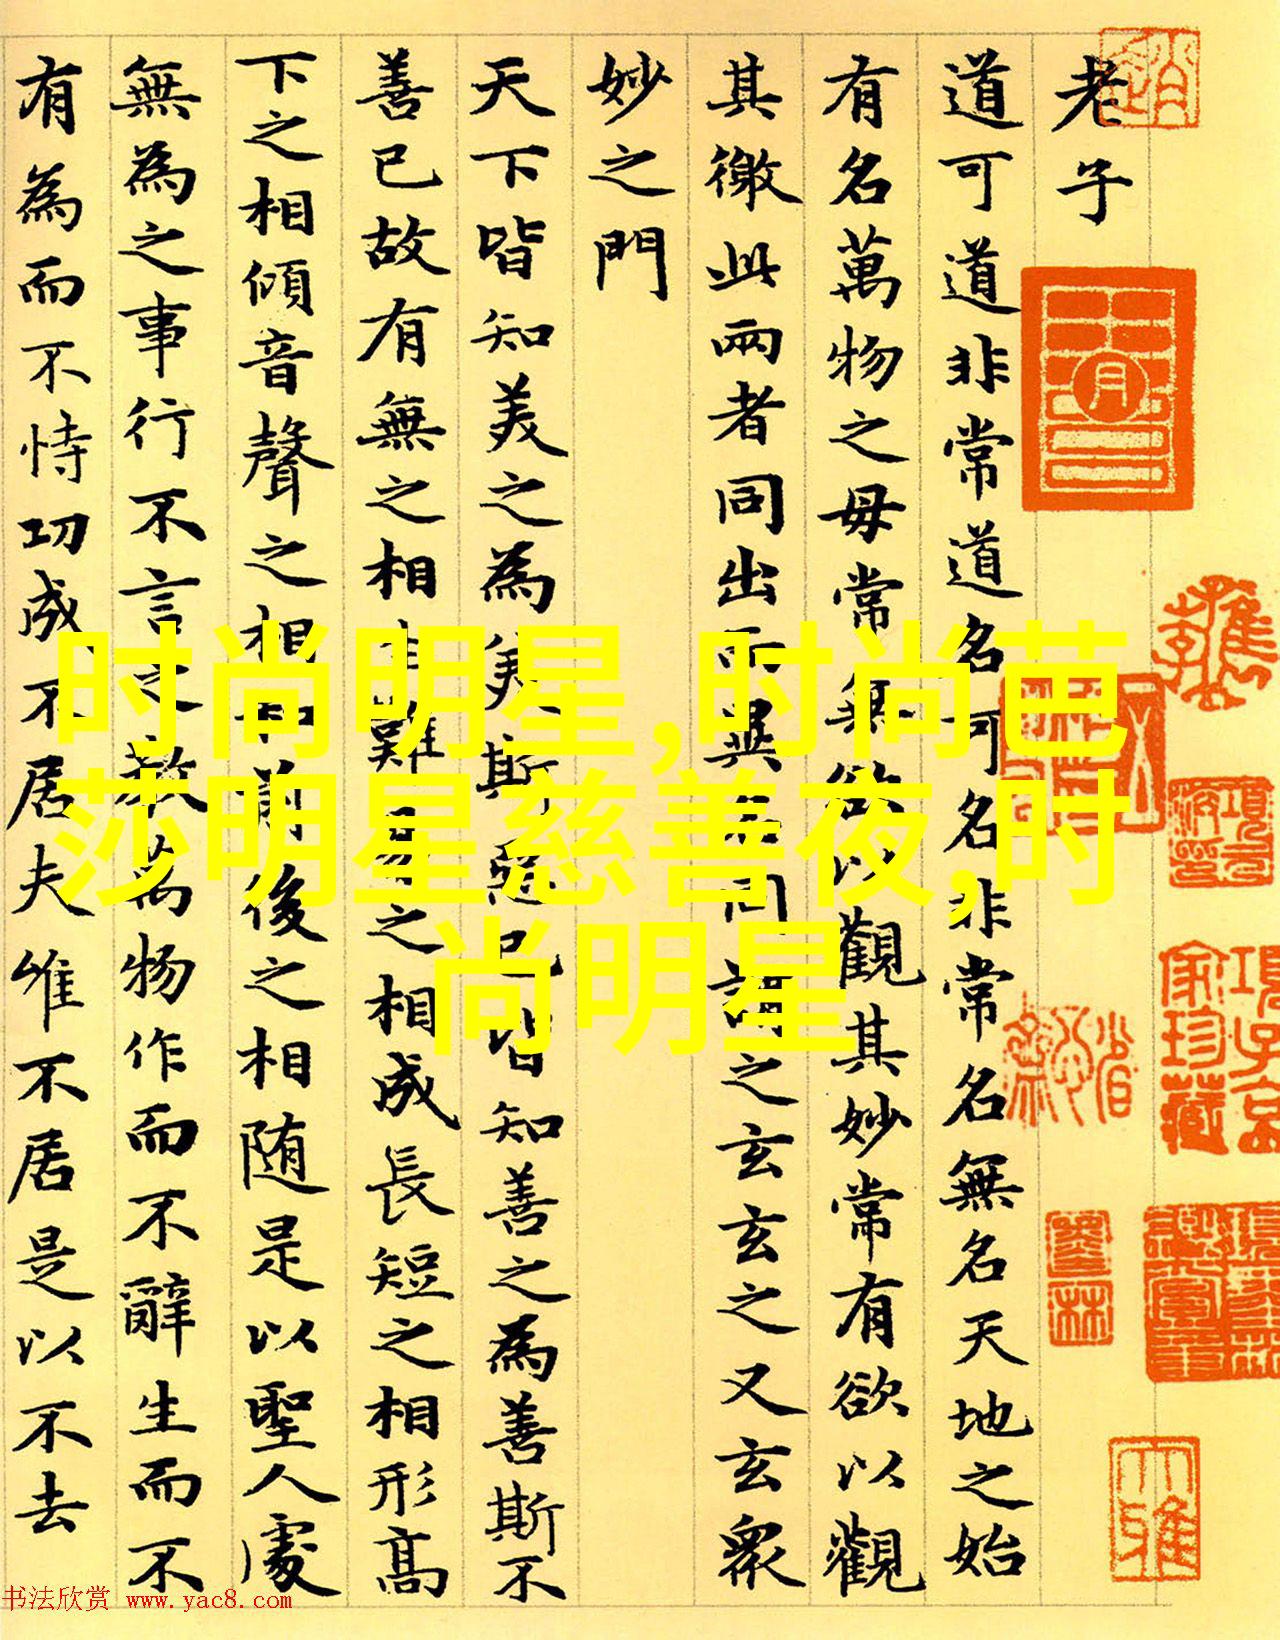 老子
道可道非常道名可名非常名無名天地之始
有名萬物之毋常無欲以觀其妙常有欲以觀
其徼此兩者同出而異名同謂之玄玄之又玄衆
妙之門
天下皆知美之為美斯惡已皆知善之為善斯不
善已故有無之相生難易之相成長短之相形高
下之相傾音聲之相和前後之相随是以聖人處
無為之事行不言之教萬物作而不辭生而不
有為而不恃功成不居夫唯不居是以不去
时尚明星,时尚芭
莎明星慈善夜,时
尚明星
项子京
家珍藏
书法欣赏 www.yac8.com